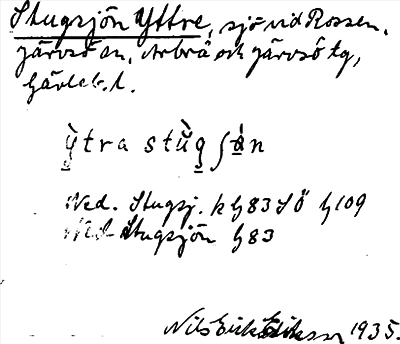 Stugsjön Yttre, sjö vid Rossen,
Järvsö sn, Arbrå och Järvsö tg,
Gävleb. l.
ỳtra stùg ʃön
Ned. Stugsj. k G 83 SÖ G 109
Ned Stugsjön G 83
Nils Erik Eriksson 1935.